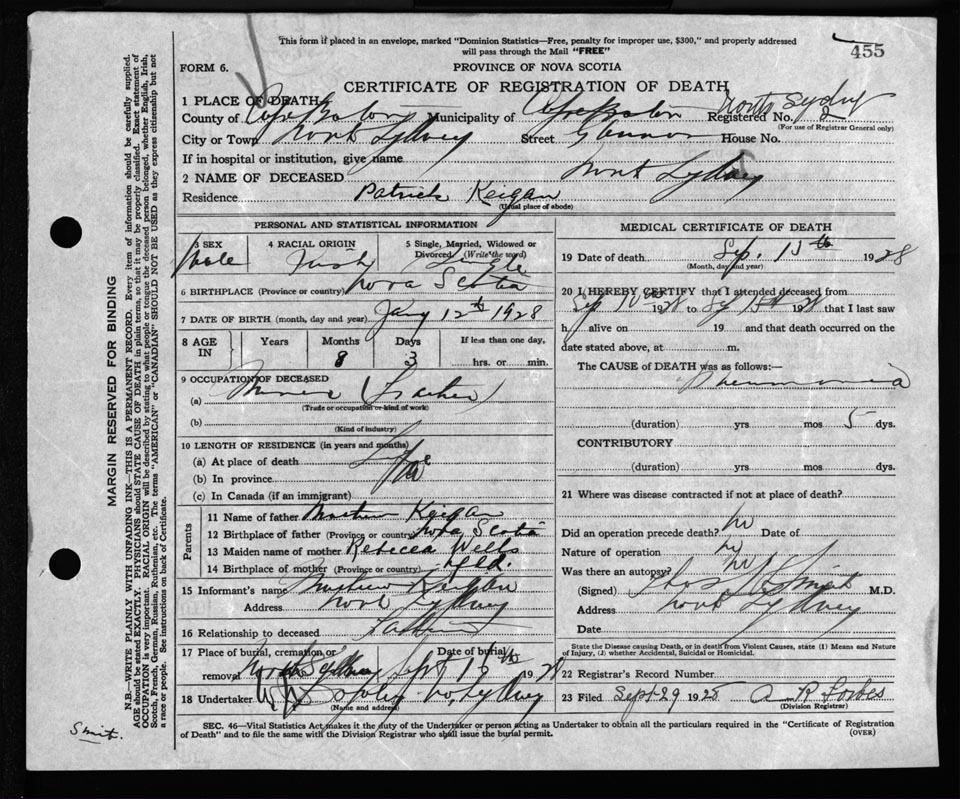 This form if placed in an envelope, marked "Dominion Statistics—Free, penalty for improper use, $300," and properly addressed
will pass through the Mail "FREE"
455
FORM 6.
PROVINCE OF NOVA SCOTIA
CERTIFICATE OF REGISTRATION OF DEATH
1 PLACE OF DEATH
North Sydney
County of Cape Breton Municipality of Cape Breton Registered No.
(For use of Registrar General only)
City or Town North Sydney Street House No.
If in hospital or institution, give name
2 NAME OF DECEASED North Sydney
Residence Patrick Keigan
(Usual place of abode)
PERSONAL AND STATISTICAL INFORMATION
3 SEX Male
4 RACIAL ORIGIN Irish
5 Single, Married, Widowed or Divorced, (Write the word) Single
6 BIRTHPLACE (Province or country) Nova Scotia
7 DATE OF BIRTH (month, day and year) Jany 12th 1928
8 AGE IN Years Months 8 Days 3 If less than one day, hrs. or min.
9 OCCUPATION OF DECEASED
(a) Miner (Father)
(Trade or occupation or kind of work)
(b)
(Kind of industry)
10 LENGTH OF RESIDENCE (in years and months)
(a) At place of death Life
(b) In province
(c) In Canada (if an immigrant)
Parents
11 Name of father Mathew Keigan
12 Birthplace of father (Province or country) Nova Scotia
13 Maiden name of mother Rebecca Wells
14 Birthplace of mother (Province or country) Nfld.
15 Informant's name Mathew Keigan
Address North Sydney
16 Relationship to deceased Father
17 Place of burial, cremation or removal North Sydney Date of burial Sept 1928
18 Undertaker No. Sydney
(Name and address)
MEDICAL CERTIFICATE OF DEATH
19 Date of death Sep. 15th 1928
(Month, day and year)
20 I HEREBY CERTIFY that I attended deceased from
Sep 10th 1928 to Sep 15th 1928 that I last saw
h alive on 19 and that death occurred on the
date stated above, at m.
The CAUSE of DEATH was as follows:—
Pneumonia
(duration) yrs mos 5 dys.
CONTRIBUTORY
(duration) yrs. mos. dys.
21 Where was disease contracted if not at place of death?
Did an operation precede death? No Date of
Nature of operation No
Was there an autopsy? No
(Signed) M.D.
Address North Sydney
Date
State the Disease causing Death, or in death from Violent Causes, state (1) Means and Nature
of Injury, (2) whether Accidental, Suicidal or Homicidal.
22 Registrar's Record Number
23 Filed Sept 29 1928 A R Forbes
(Division Registrar)
SEC. 46—Vital Statistics Act makes it the duty of the Undertaker or person acting as Undertaker to obtain all the particulars required in the "Certificate of Registration
of Death" and to file the same with the Division Registrar who shall issue the burial permit.
(OVER)
MARGIN RESERVED FOR BINDING
N.B.—WRITE PLAINLY WITH UNFADING INK—THIS IS A PERMANENT RECORD. Every item of information should be carefully supplied.
AGE should be stated EXACTLY. PHYSICIANS should STATE CAUSE OF DEATH in plain terms, so that it may be properly classified. Exact statement of
OCCUPATION is very important. RACIAL ORIGIN will be described by stating to what people or tongue the deceased person belonged, whether English, Irish,
Scotch, French, German, Russian, Ruthenian, etc. The terms "AMERICAN" or "CANADIAN" SHOULD NOT BE USED as they express citizenship but not
a race or people. See instructions on back of Certificate.